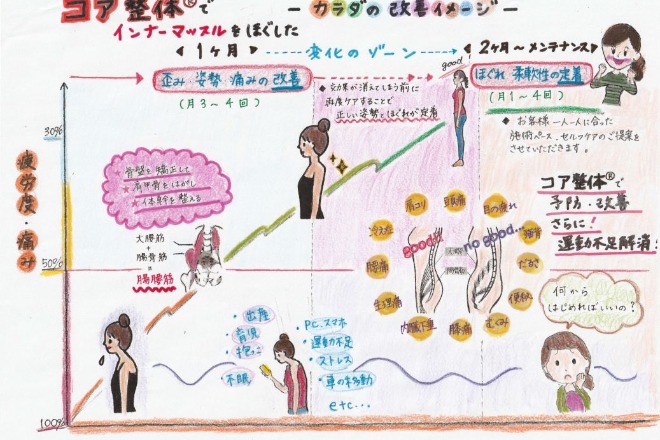 コア整体®で
インナーマッスルをほぐした
－カラダの改善イメージ－
1ヶ月
変化のゾーン
2ヶ月～メンテナンス
歪み・姿勢・痛みの改善
(月3～4回)
◆効果が消えてしまう前に
再度ケアすることで
正しい姿勢とほぐれが定着
good
ほぐれ 柔軟性の定着
(月1～4回)
◆お客様一人一人に合った
施術ペース、セルフケアのご提案を
させていただきます。
30%
疲労度・痛み
50%
100%
骨盤を矯正して
★肩甲骨をはがし
★体幹を整える
大腰筋
+
腸骨筋
=
腸腰筋
コア整体®で
予防・改善
さらに!
運動不足解消!
肩こり
頭痛
目の疲れ
冷え症
腰痛
生理痛
内臓下垂
膝痛
むくみ
便秘
だるさ
good!!
no good...
何から
はじめればいいの?
・出産
・育児
・抱っこ
・不眠
PC、スマホ
・運動不足
・ストレス
・車の移動
etc...